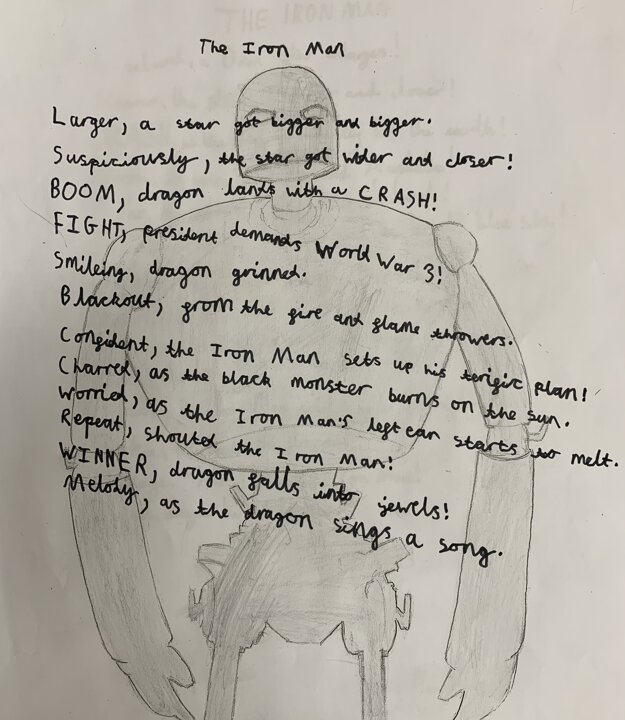 The Iron Man
Larger, a star got bigger and bigger.
Suspiciously, the star got wider and closer!
BOOM, dragon lands with a CRASH!
FIGHT, president demands World War 3!
Smileing, dragon grinned.
Blackout, from the fire and flame throwers.
Confident, the Iron Man sets up his terific plan!
Charred, as the black monster burns on the sun.
Worrid, as the Iron Man's left ear starts to melt.
Repeat, shouted the Iron Man!
WINNER, dragon falls into jewels!
Melody, as the dragon sings a song.